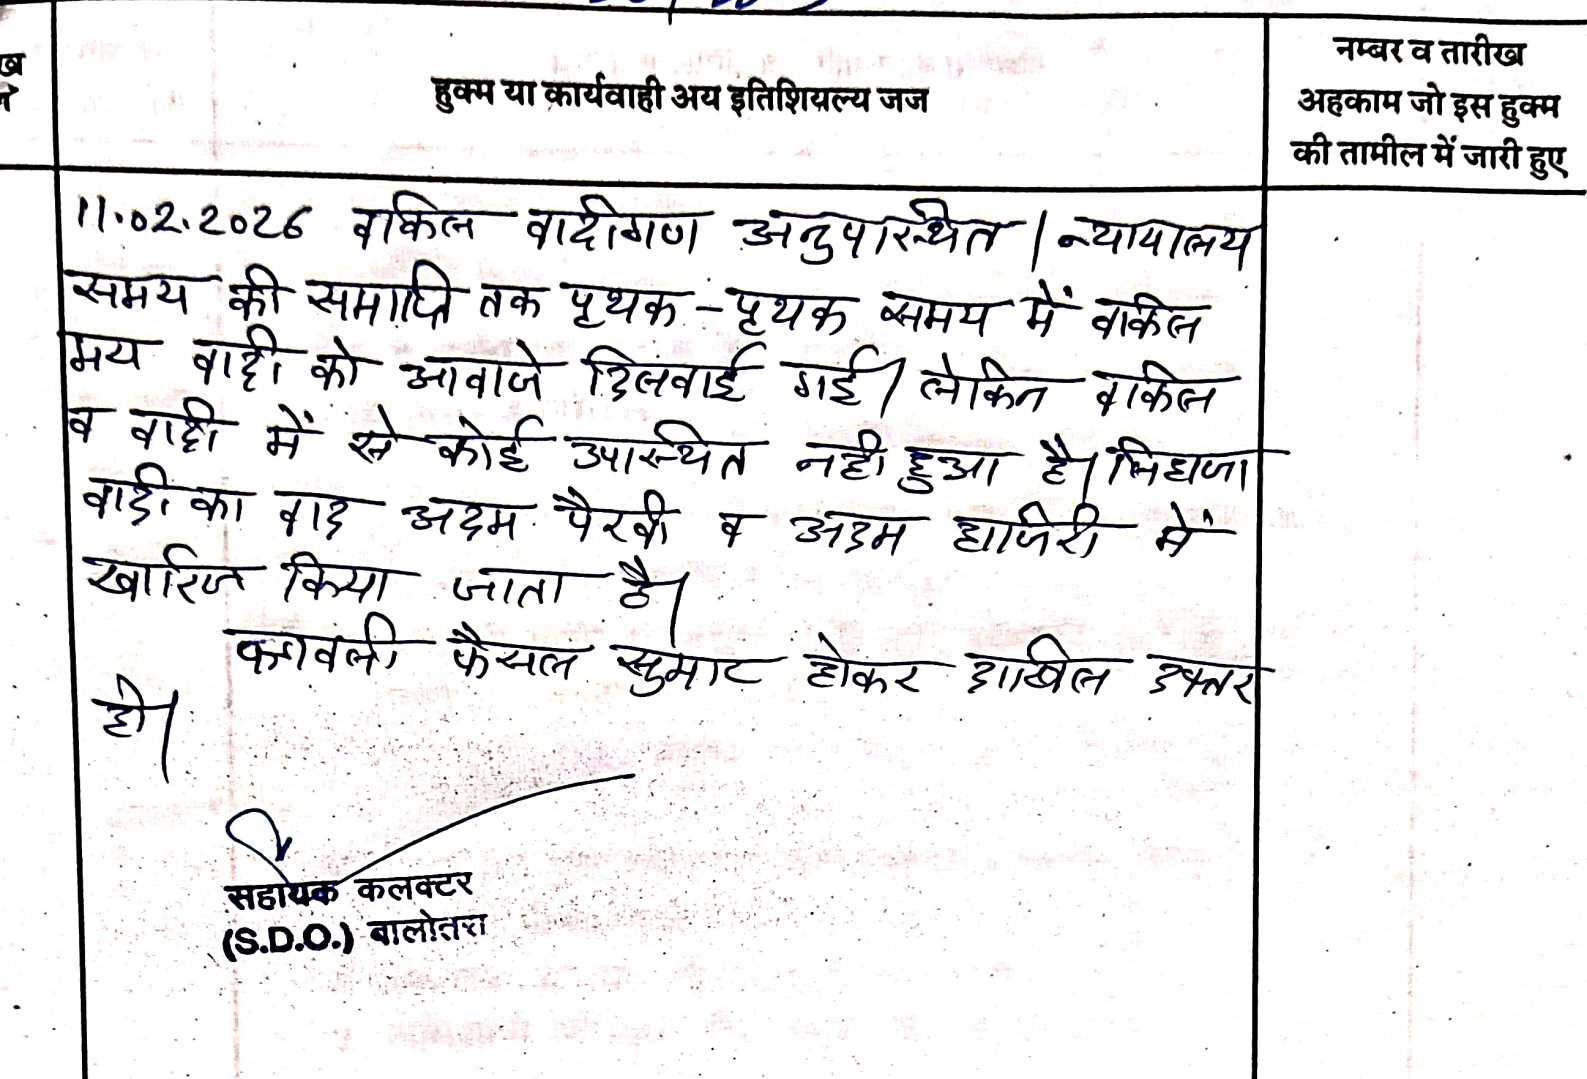 नम्बर व तारीख
हुक्म या कार्यवाही अय इतिशियल्य जज
अहकाम जो इस हुक्म
की तामील में जारी हुए
11.02.2026 वकिल वादीगण अनुपस्थित। न्यायालय
समय की समाप्ति तक पृथक-पृथक समय में वकिल
मय वादी को आवाजे दिलवाई गई। लेकिन वकिल
व वादी में से कोई उपस्थित नही हुआ है। लिहाजा
वादी का वाद अदम पैरवी व अदम हाजिरी में
खारिज किया जाता है।
फैसल सुमार होकर दाखिल दफ्तर
हो।
सहायक कलक्टर
(S.D.O.) बालोतरा